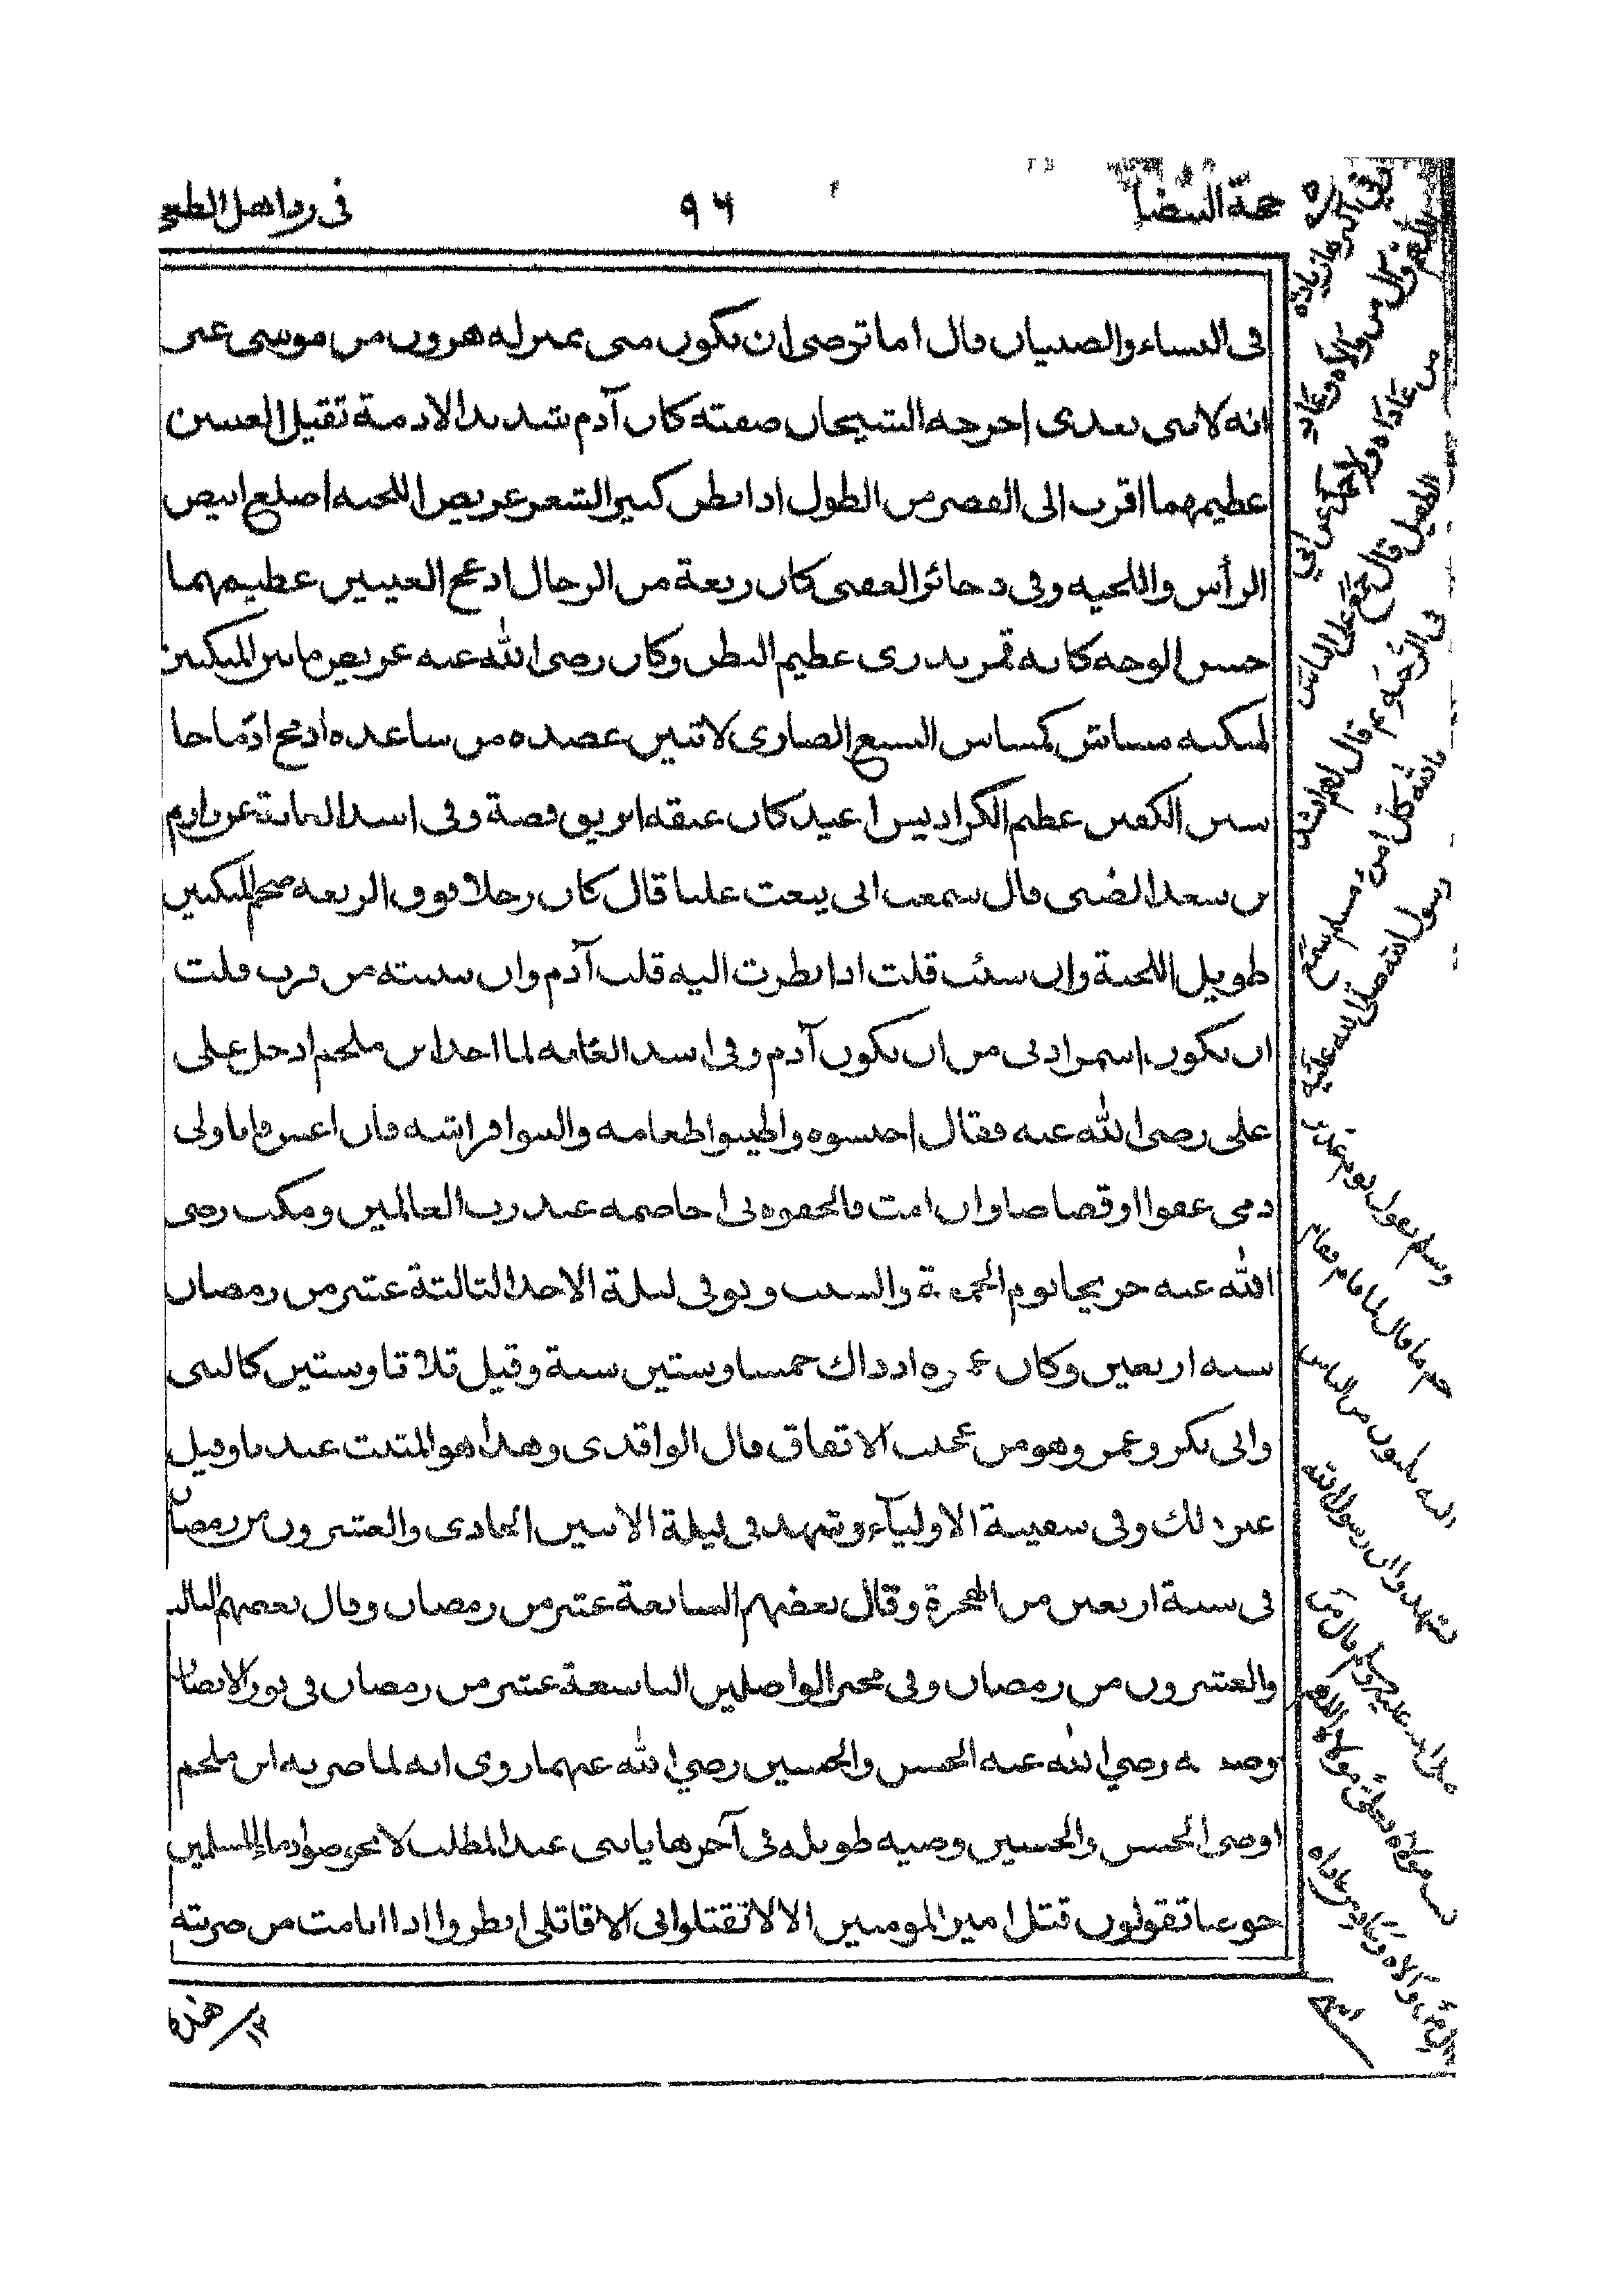 حجة البيضا
٩٦
في رد اهل الطغى
في النساء والصبيان قال اما ترضى ان تكون منى بمنزلة هرون من موسى غير
انه لا نبى بعدى اخرجه الشيخان صفته كان آدم شديد الادمة ثقيل العينين
عظيمهما اقرب الى القصر من الطول اذا نظر كثير الشعر عريض اللحية اصلع ابيض
الرأس واللحيه وفى ذخائر العقبى كان ربعة من الرجال ادعج العينين عظيمهما
حسن الوجه كانه قمر بدرى عظيم البطن وكان رضى الله عنه عريض ما بين المنكبين
لمنكبه مشاش كمشاش السبع الضارى لا تبين عضده من ساعده ادمج ادماجا
شثن الكفين عظيم الكراديس اغيد كان عنقه ابريق فضة وفى اسد الغابة عن رزام
بن سعد الضبى قال سمعت ابى ينعت عليا قال كان رجلا فوق الربعه ضخم المنكبين
طويل اللحية وان شئت قلت اذا نظرت اليه قلت آدم وان تبينته من قرب قلت
ان يكون اسمر ادنى من ان يكون آدم وفى اسد الغابه لما اخذ ابن ملجم ادخل على
على رضى الله عنه فقال احبسوه واطيبوا طعامه والينوا فراشه فان اعش فانا ولى
دمى عفوا او قصاصا وان امت فالحقوه بى اخاصمه عند رب العالمين ومكث رضى
الله عنه جريحا يوم الجمعة والسبت وتوفى ليلة الاحد الثالثة عشر من رمضان
سنه اربعين وكان عمره اذ ذاك خمسا وستين سنة وقيل ثلاثا وستين كالنبى
وابى بكر وعمر وهو من عجب الاتفاق قال الواقدى وهذا هو المثبت عندنا وقيل
غير ذلك وفى سفينة الاولياء وشهد فى ليلة الاثنين الحادى والعشرون من رمضان
فى سنة اربعين من الهجرة وقال بعضهم السابعة عشر من رمضان وقال بعضهم الثالث
والعشرون من رمضان وفى مخبر الواصلين التاسعة عشر من رمضان فى نور الابصار
وصيه رضي الله عنه الحسن والحسين رضي الله عنهما روى انه لما ضربه ابن ملجم
اوصى الحسن والحسين وصيه طويله فى آخرها يا بنى عبد المطلب لا تخوضوا دماء المسلمين
خوضا تقولون قتل امير المومنين الا لا تقتلوا بى الا قاتلى انظروا اذا انا مت من ضربته
هذه
من عاداه واخرج احمد عن ابى
الطفيل قال جمع على الناس
فى الرحبه ثم قال لهم انشد
بالله كل امرئ مسلم سمع
رسول الله صلى الله عليه
وسلم يقول يوم غدير
خم ما قال لما قام فقام
اليه ثلثون من الناس
فشهدوا ان رسول الله
صلى الله عليه وسلم قال من